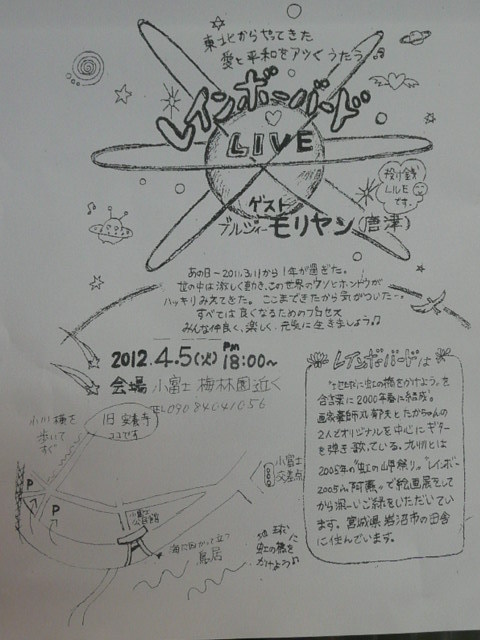 東北からやってきた
愛と平和をアツくうたう♪
レインボーバード
LIVE
投げ銭
LIVE
です。
ゲスト
ブルジィー モリヤン(唐津)
あの日〜2011.3.11から1年が過ぎた。
世の中は激しく動き、この世界のウソとホントウが
ハッキリみえてきた。ここまできたから気がついた…。
すべては良くなるためのプロセス
みんな仲良く、楽しく、元気に生きましょう♫
2012.4.5(火) PM 18:00〜
会場 小富士 梅林園近く
TEL 09084041056
小川横を
歩いて
すぐ
旧 安養寺
ココです
P
P
小富士
公民館
小富士
交差点
海に向かって立つ
鳥居
地球に
虹の橋を
かけよう♫
レインボーバードは
"地球に虹の橋をかけよう。"を
合言葉に2000年春に結成。
画家養師丸郁夫とたかちゃんの
2人でオリジナルを中心にギター
を弾き歌っている。九州とは
2005年の"虹の岬祭り"、"レインボー
2005 in 阿蘇"で絵画展をして
から深ーいご縁をいただいてい
ます。宮城県岩沼市の田舎
に住んでいます。